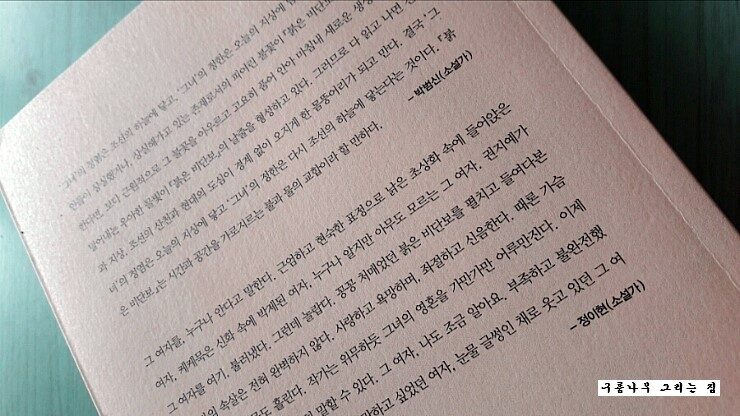 '그녀'의 정한은 오늘의 지상에
'그녀'의 정염은 조선의 하늘에 닿고,
존재로서의 피어린 불꽃이 『붉은 비단보
한다면, 보다 근원적으로 그 불꽃을 아우르고 고요히 품어 안아 마침내 새로운
밀어내는 우아한 물빛이 『붉은 비단보』의 날줄을 형상하고 있다. 그러므로 다 읽고 나면
과 지상, 조선의 산천과 현대의 도심이 경계 없이 오지게 한 몸뚱어리가 되고 만다. 결국 '그
녀'의 정염은 오늘의 지상에 닿고 '그녀'의 정한은 다시 조선의 하늘에 닿는다는 것이다. 『붉
은 비단보』는 시간과 공간을 가로지르는 불과 물의 교합이라 할 만하다.
– 박범신(소설가)
그 여자를, 누구나 안다고 말한다. 근엄하고 현숙한 표정으로 낡은 초상화 속에 들어앉은
여자, 케케묵은 신화 속에 박제된 여자, 누구나 알지만 아무도 모르는 그 여자. 권지예가
그 여자를 여기, 불러냈다. 그런데 놀랍다. 꽁꽁 처매었던 붉은 비단보를 펼치고 들여다본
속살은 전혀 완벽하지 않다. 사랑하고 욕망하며, 좌절하고 신음한다. 때론 가슴
흘린다. 작가는 위무하듯 그녀의 영혼을 가만가만 어루만진다. 이제
말할 수 있다. 그 여자, 나도 조금 알아요. 부족하고 불완전했
싶었던 여자, 눈물 글썽인 채로 웃고 있던 그 여
– 정이현(소설가)
구름나무 그리는 집